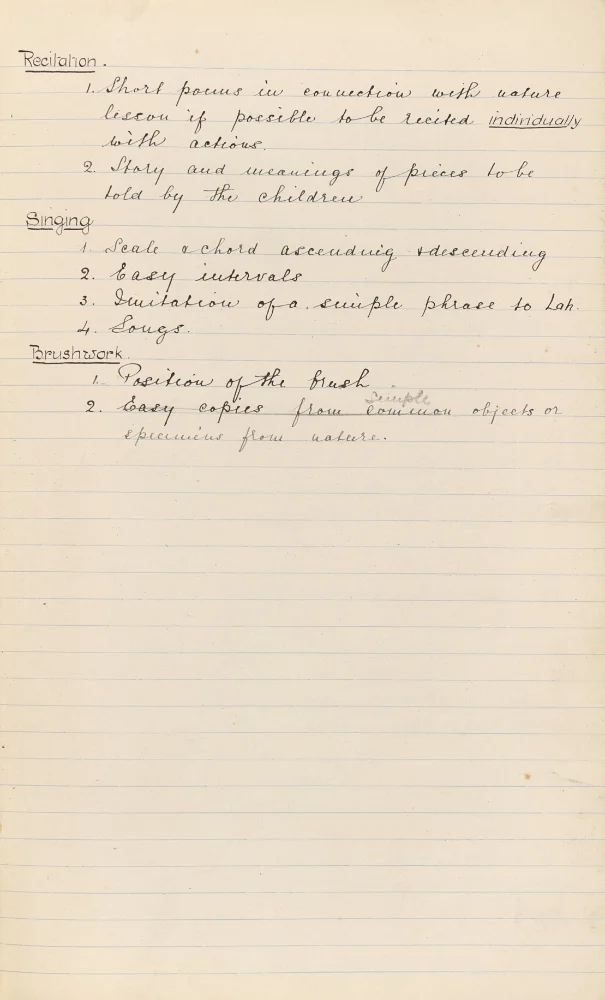 Recitation.
1. Short poems in connection with nature
lesson if possible to be recited individually
with actions.
2. Story and meanings of pieces to be
told by the children
Singing
1. Scale & chord ascending & descending
2. Easy intervals
3. Imitation of a simple phrase to Lah.
4. Songs.
Brushwork.
1. Position of the brush.
simple
2. Easy copies from common objects or
specimens from nature.